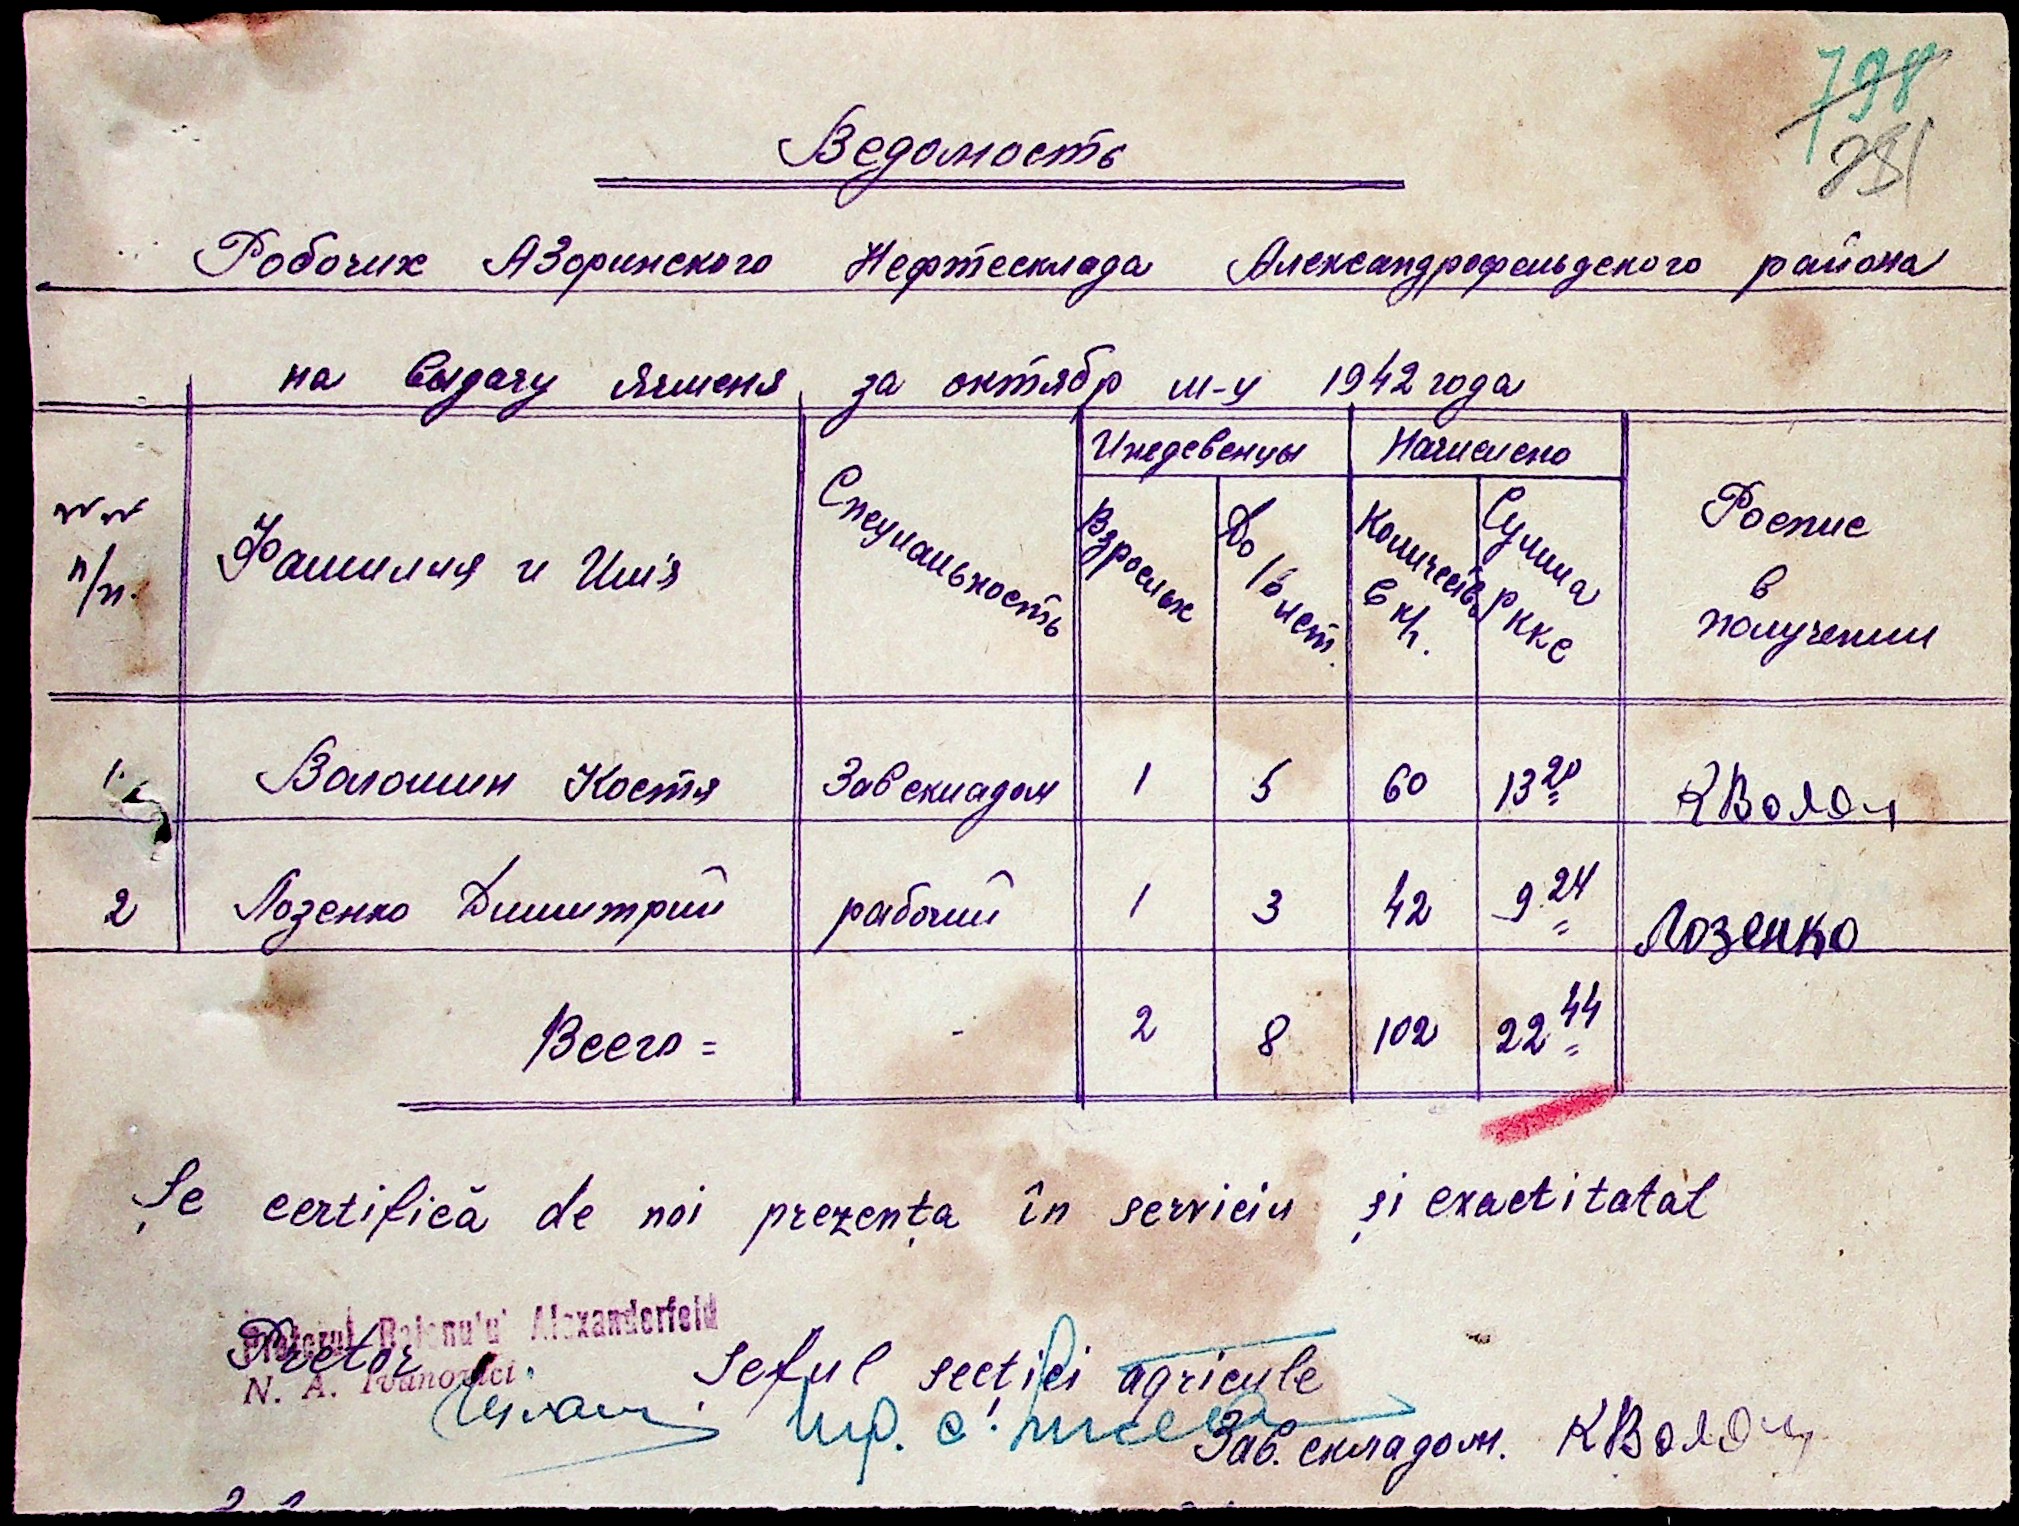 798
231
Ведомость
Робочих АЗоринского Нефтесклада Александрофельдского района
на выдачу ячменя за октябр м-ц 1942 года
№№ п/п.
Фамилия и Им'я
Специальность
Иждевенцы
Взрослых
До 16 лет.
Начислено
Количество в к/г.
Сумма РККС
Роспис в получении
1. Волошин Костя Завскладом 1 5 60 13 20 КВолош
2 Лозенко Димитрий рабочий 1 3 42 9 24 Лозенко
Всего = - 2 8 102 22 44
Se certifică de noi prezența în serviciu și exactitatal
Pretorul Raionului Alexanderfeld
Pretor
N. A. Ivanovici
Seful secției agricule
Зав. складом. КВолош